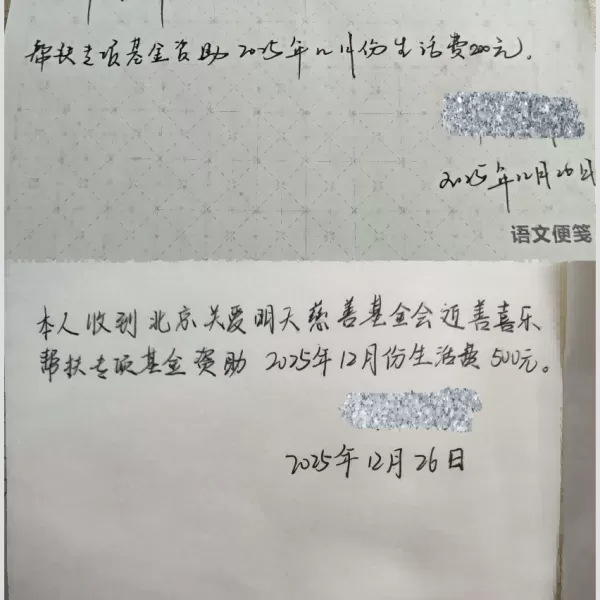 帮扶专项基金资助 2025年12月份生活费200元。
2025年12月26日
语文便笺
本人收到北京关爱明天慈善基金会近善喜乐
帮扶专项基金资助 2025年12月份生活费500元。
2025年12月26日